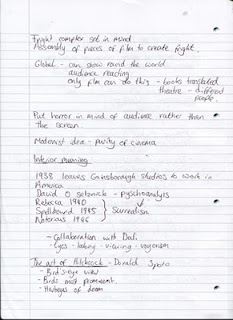 Fright complex set in mind
Assembly of pieces of film to create fright.
Global - can show round the world
audience reacting
only film can do this - books translated
theatre - different
people.
Put horror in mind of audience rather than
the screen.
Modernist idea - purity of cinema
Interior meaning
1938 leaves Gainsborough studios to work in
America
David O Selznick - psychoanalysis
Rebecca 1940
Spellbound 1945 Surrealism
Notorious 1946
- Collaboration with Dali
- Eyes - looking - viewing - voyeurism
The art of Hitchcock - Donald Spoto
- Bird's-eye view
- Birds most prominent
- Harbingers of doom